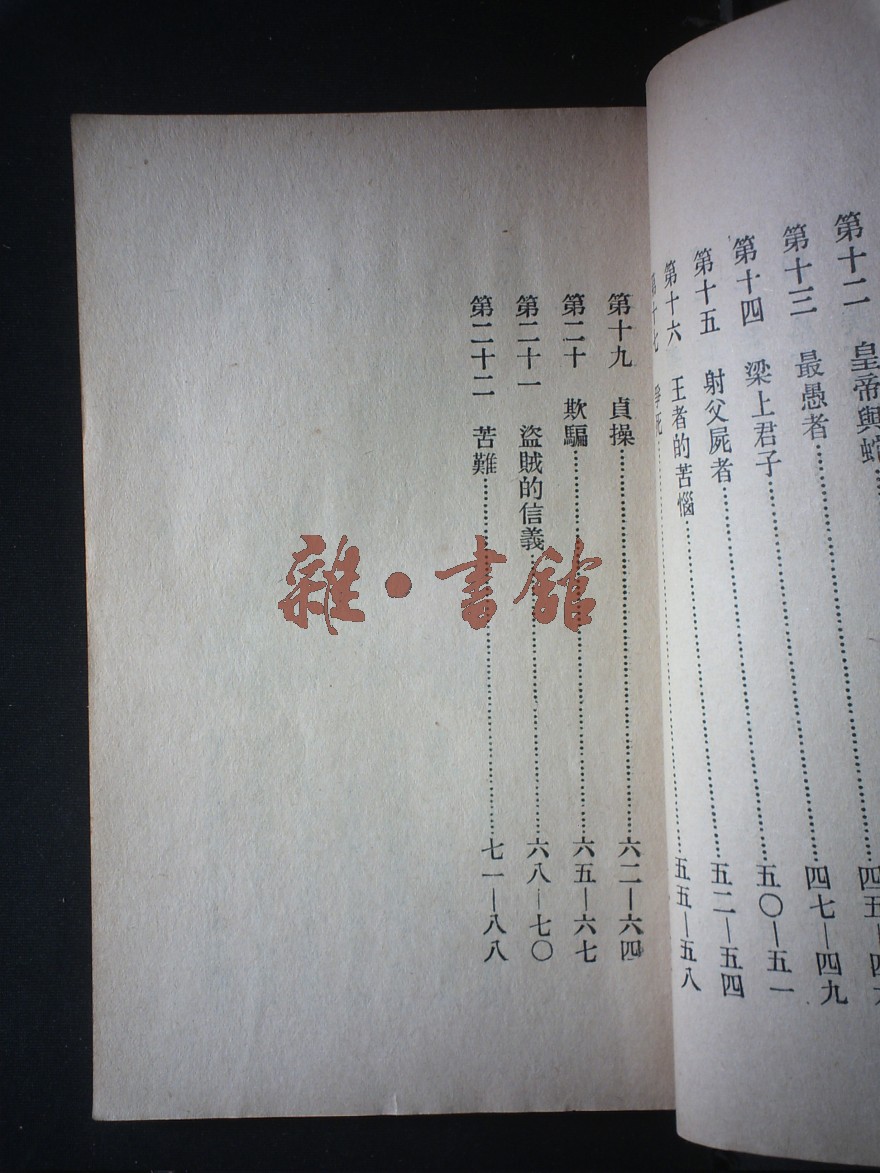 第十二 皇帝與蛇……四五—四六
第十三 最愚者……四七—四九
第十四 梁上君子……五〇—五一
第十五 射父屍者……五二—五四
第十六 王者的苦惱……五五—五八
第十七 爭死……
第十九 貞操……六二—六四
第二十 欺騙……六五—六七
第二十一 盜賊的信義……六八—七〇
第二十二 苦難……七一—八八
雜·書館